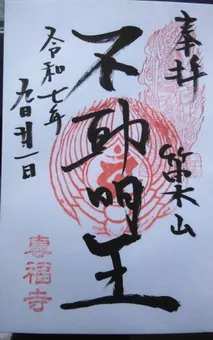 奉拝
笹不山
不動明王
令和七年
九月一日
専福寺